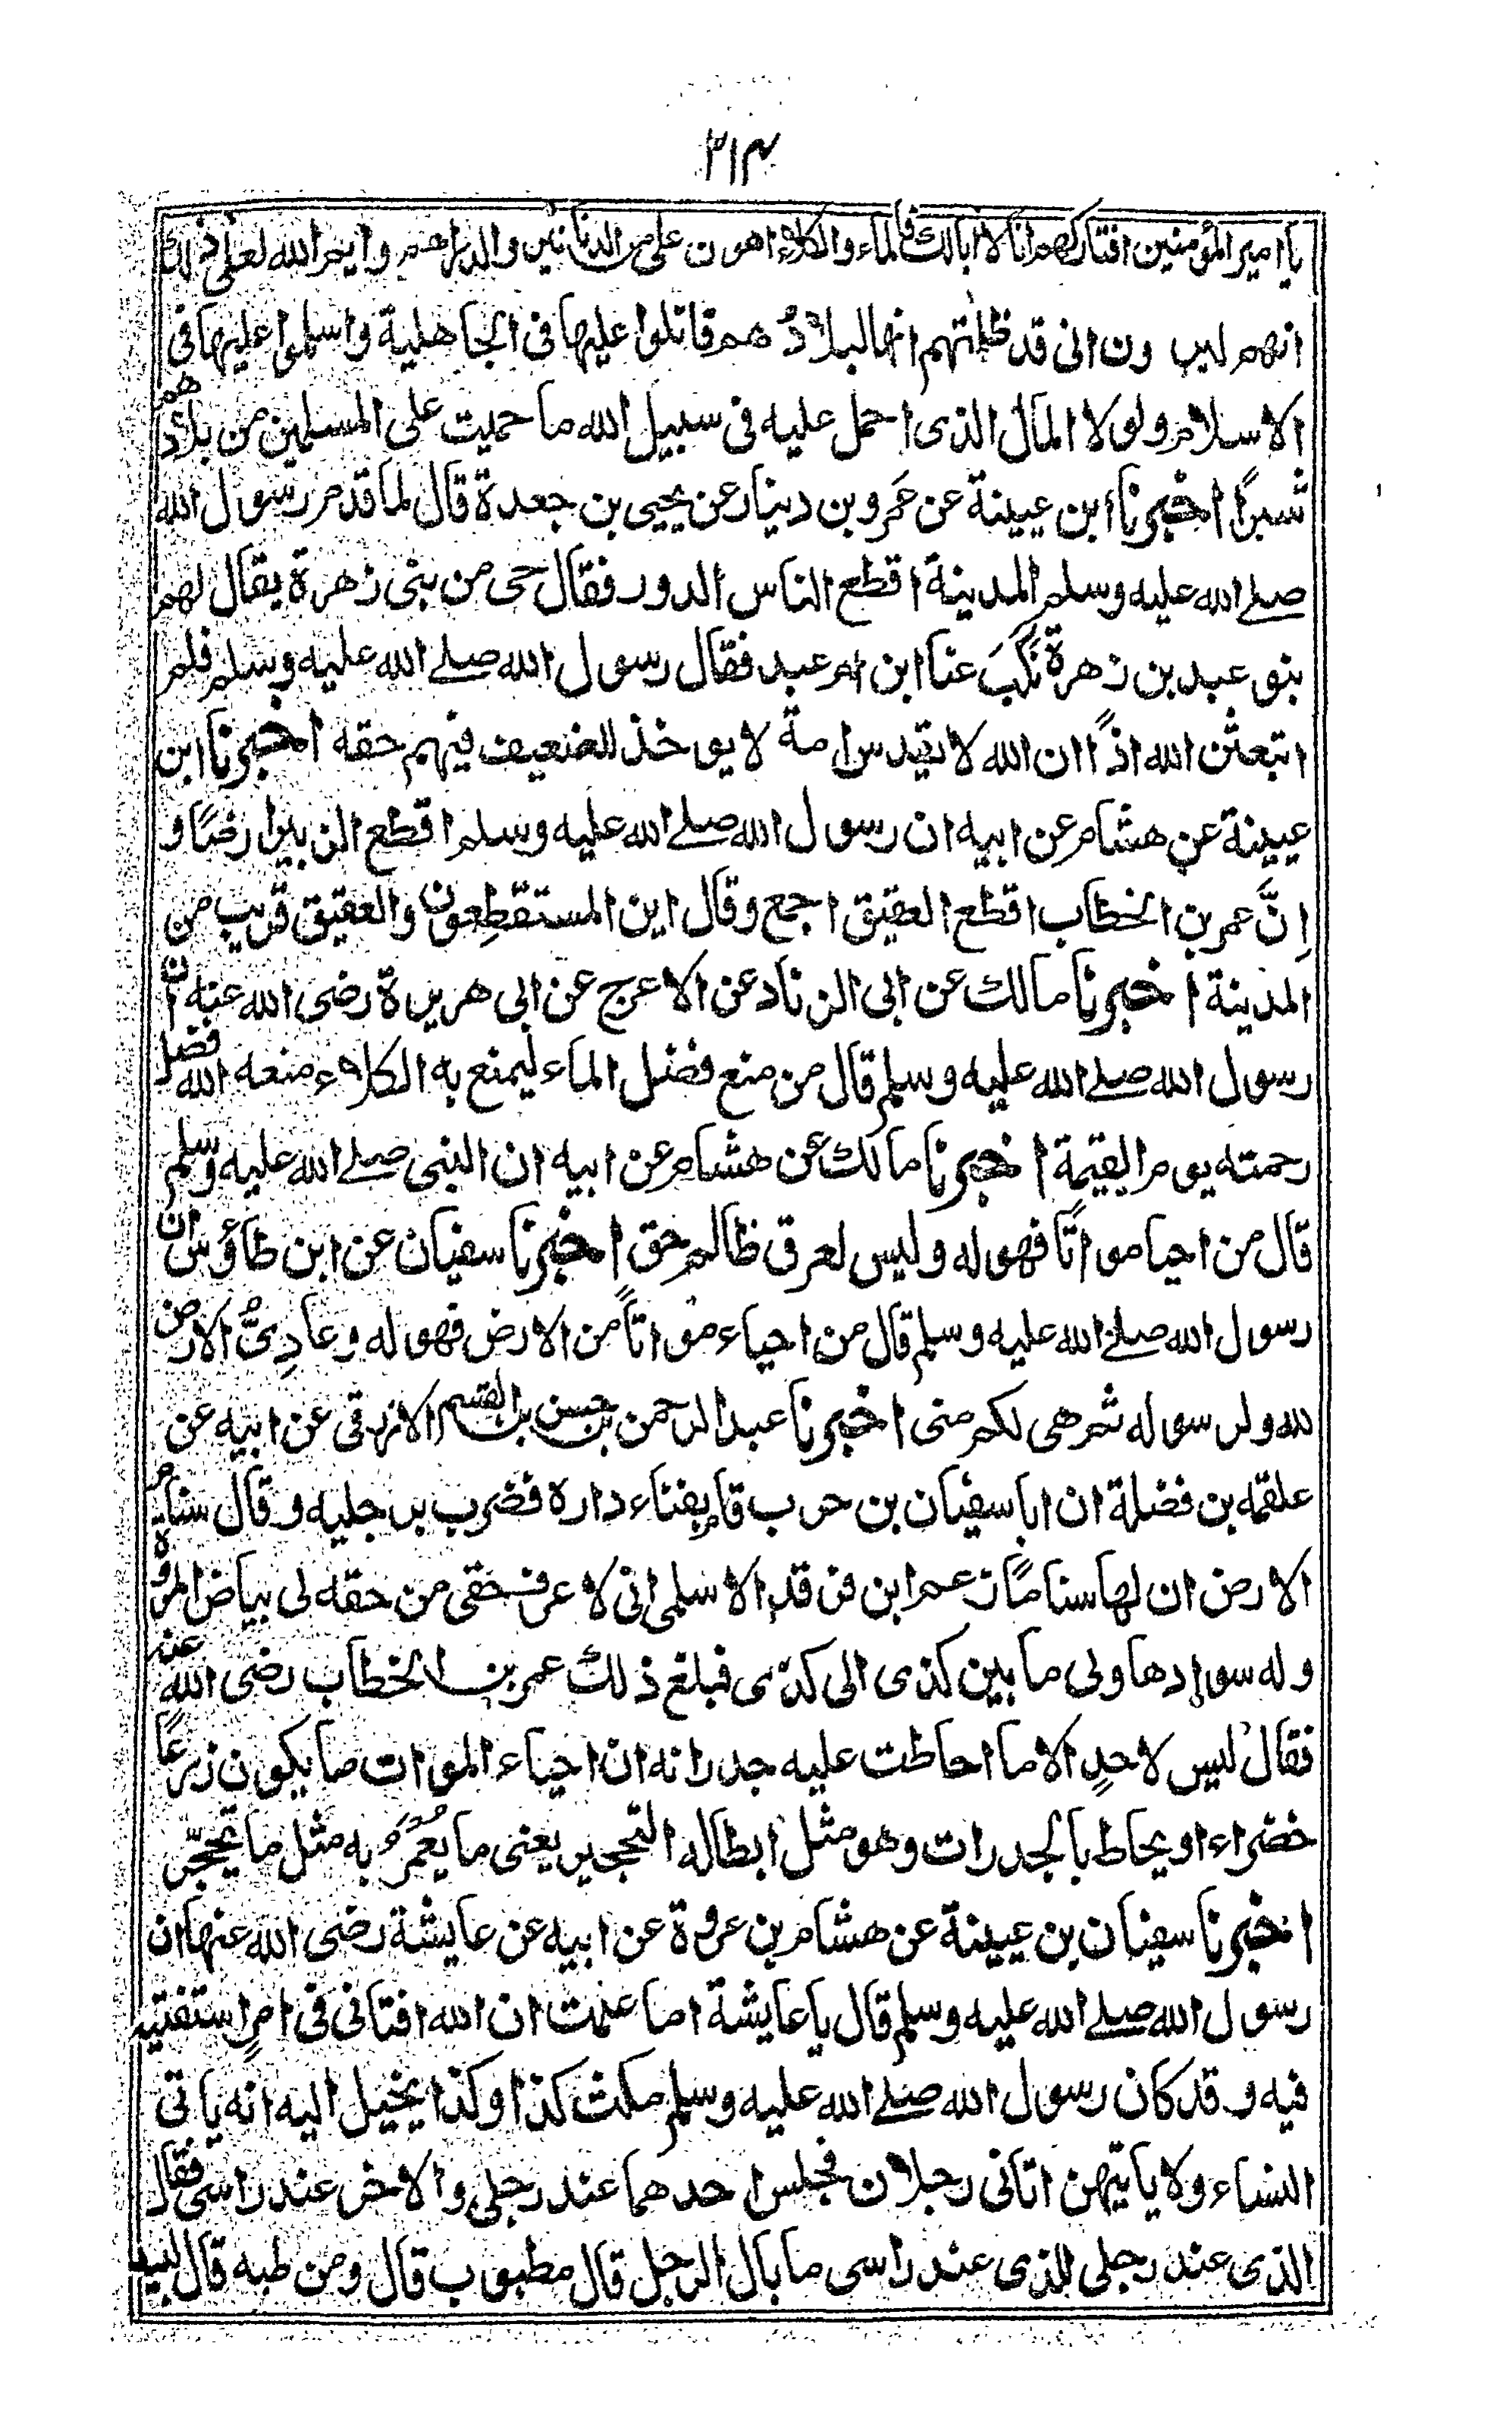 ٢١٤
يا امير المؤمنين افتاركهم انا لا ابالك فالماء والكلاء اهون على من الدنانير والدراهم وايم الله لعلى ذلك
انهم ليرون انى قد ظلمتهم انها لبلادهم قاتلوا عليها فى الجاهلية واسلموا عليها فى
الاسلام ولو لا المال الذى احمل عليه فى سبيل الله ما حميت على المسلمين من بلادهم
شبرًا اخبرنا ابن عيينة عن عمرو بن دينار عن يحيى بن جعدة قال لما قدم رسول الله
صلے الله عليه وسلم المدينة اقطع الناس الدور فقال حى من بنى زهرة يقال لهم
بنو عبد بن زهرة نَكِّبْ عنا ابن ام عبد فقال رسول الله صلے الله عليه وسلم فلم
ابتعثن الله اذًا ان الله لا يقدس امة لا يوخذ للضعيف فيهم حقه اخبرنا ابن
عيينة عن هشام عن ابيه ان رسول الله صلے الله عليه وسلم اقطع الزبير ارضًا و
اِنَّ عمر بن الخطاب اقطع العقيق اجمع وقال اين المستقطِعون والعقيق قريب من
المدينة اخبرنا مالك عن ابى الزناد عن الاعرج عن ابى هريرة رضى الله عنه ان
رسول الله صلے الله عليه وسلم قال من منع فضل الماء ليمنع به الكلاء منعه الله فضل
رحمته يوم القيمة اخبرنا مالك عن هشام عن ابيه ان النبى صلے الله عليه وسلم
قال من احيا مواتًا فهو له وليس لعرق ظالم حق اخبرنا سفيان عن ابن طاؤس ان
رسول الله صلے الله عليه وسلم قال من احياء مواتًا من الارض فهو له وعادِىُّ الارض
لله ولرسوله ثم هى لكم منى اخبرنا عبد الرحمن بن حسن بن القسم الازرقى عن ابيه عن
علقمه بن فضلة ان ابا سفيان بن حرب قام بفناء داره فضرب برجليه وقال سنام
الارض ان لها سنامًا زعم ابن فرقد الاسلمى انى لا عرف حقى من حقه لى بياض المروة
وله سوادها ولى ما بين كذى الى كذى فبلغ ذلك عمر بن الخطاب رضى الله عنه
فقال ليس لاحدٍ الا ما احاطت عليه جدرانه ان احياء الموات ما يكون زرعًا
خضراء او يحاط بالجدرات وهو مثل ابطاله التحجير يعنى ما يُعْمَرُ به مثل ما يحجّر
اخبرنا سفيان بن عيينة عن هشام بن عروة عن ابيه عن عايشة رضى الله عنها ان
رسول الله صلے الله عليه وسلم قال يا عايشة اما علمت ان الله افتانى فى امرٍ استفتيته
فيه وقد كان رسول الله صلے الله عليه وسلم مكث كذا وكذا يخيل اليه انه ياتى
النساء ولا ياتيهن اتانى رجلان فجلس احدهما عند رجلى والاخر عند راسى فقال
الذى عند رجلى للذى عند راسى ما بال الرجل قال مطبوب قال ومن طبه قال لبيد